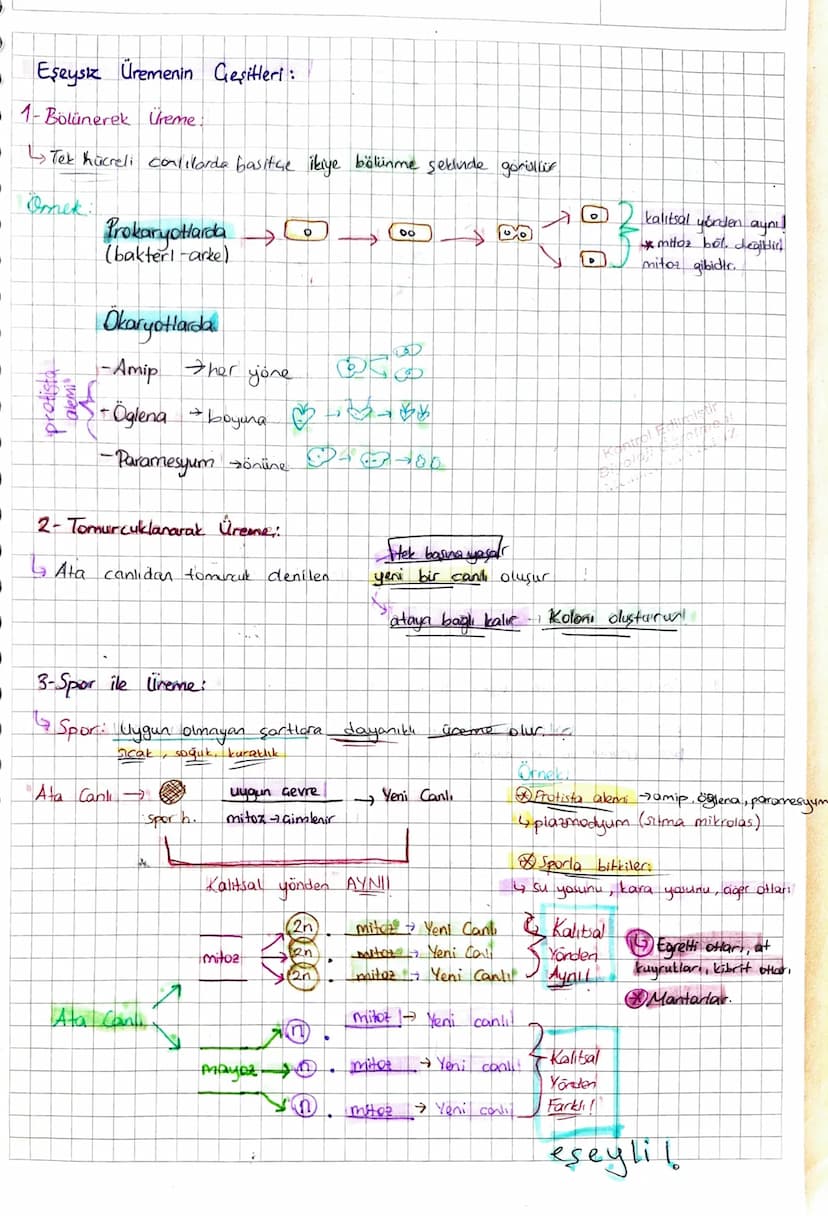 Eşeysiz Üremenin Çeşitleri:
1- Bölünerek Üreme:
↳ Tek hücreli canlılarda basitçe ikiye bölünme şeklinde görülür
Örnek:
Prokaryotlarda
(bakteri - arke)
kalıtsal yönden aynı!
* mitoz böl. değildir!
mitoz gibidir.
Ökaryotlarda
protista alemi
- Amip → her yöne
- Öglena → boyuna
- Paramesyum → enine
Kontrol Edilmiştir
2- Tomurcuklanarak Üreme:
tek başına yaşar
↳ Ata canlıdan tomurcuk denilen yeni bir canlı oluşur
ataya bağlı kalır → Koloni oluşturur!
3- Spor ile Üreme:
↳ Spor: Uygun olmayan şartlara dayanıklı üreme olur.
sıcak, soğuk, kuraklık
Ata Canlı → spor h.
uygun çevre → Yeni Canlı
mitoz → çimlenir
Kalıtsal yönden AYNI!
Örnek:
* Protista alemi → amip, öglena, paramesyum
↳ plazmodyum (sıtma mikrobu)
* Sporla bitkiler:
↳ su yosunu, kara yosunu, ciğer otları
↳ Eğrelti otları, at
kuyrukları, kibrit otları
* Mantarlar.
Ata Canlı
mitoz
2n . mitoz → Yeni Canlı
2n . mitoz → Yeni Canlı
2n . mitoz → Yeni Canlı
Kalıtsal
Yönden
Aynı!
mayoz
n . mitoz → Yeni canlı!
n . mitoz → Yeni canlı!
n . mitoz → Yeni canlı
Kalıtsal
Yönden
Farklı!
eşeyli!